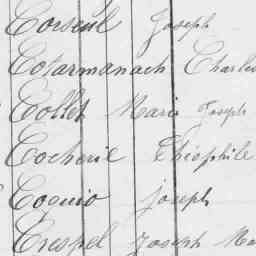 Corseul Joseph
Cotarmanach Charles
Collet Marie Joseph
Cocherie Théophile
Coguio joseph
Crespel Joseph Ma